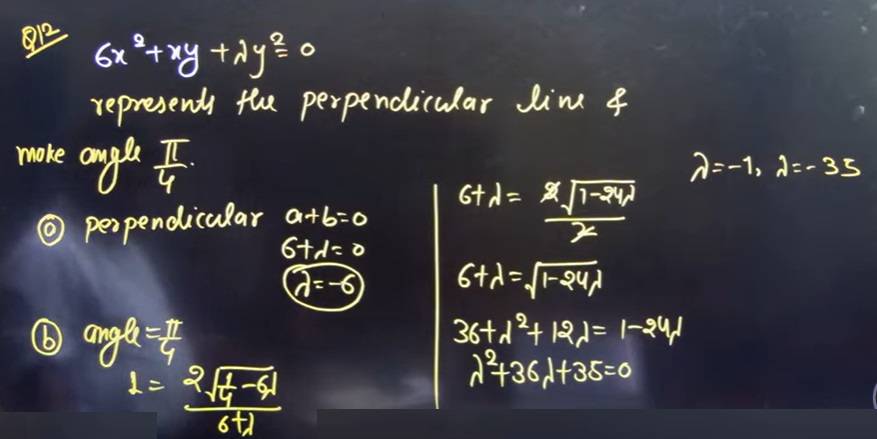 Q12
6x²+xy+λy²=0
represents the perpendicular line &
make angle π/4.
ⓐ perpendicular a+b=0
6+λ=0
λ=-6
ⓑ angle=π/4
1= 2√(1/4-6λ)/(6+λ)
6+λ= 2√(1-24λ)/2
6+λ=√(1-24λ)
36+λ²+12λ=1-24λ
λ²+36λ+35=0
λ=-1, λ=-35